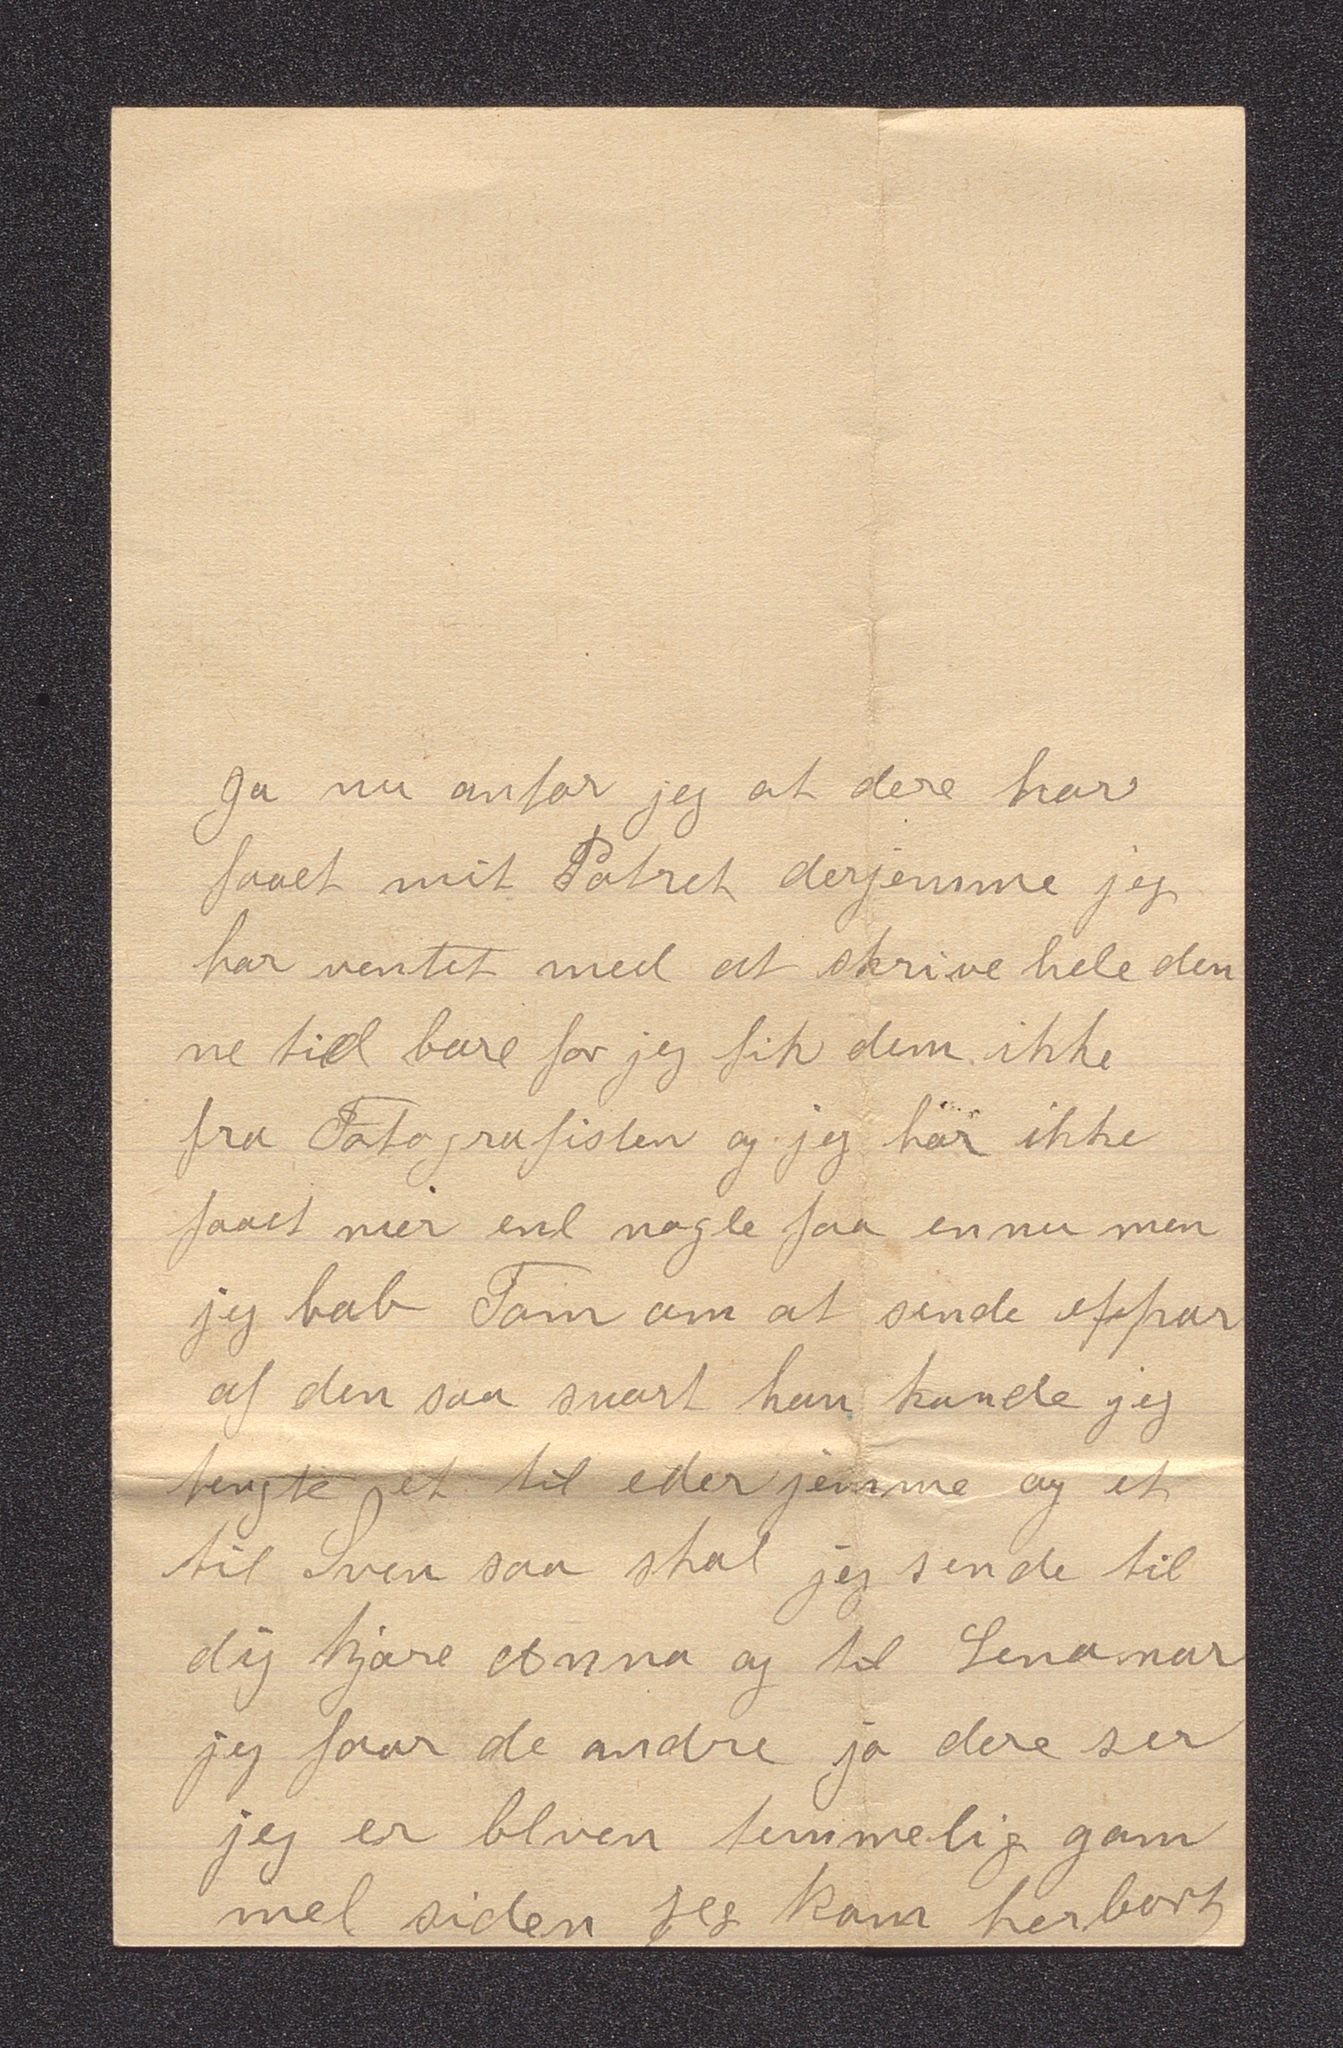 Ja nu anfor jeg at dere har
faaet mit Potret derjemme jeg
har ventet med at skrive hele den
ne tid bare for jeg fik dem ikke
fra Fotografisten og jeg har ikke
faaet mer end nogle faa ennu men
jeg bab Tom om at sende etpar
af den saa snart han kunde jeg
tengte et til eder jemme og et
til Sven saa skal jeg sende til
dig kjære Anna og til Lena nar
jeg faar de andre ja dere ser
jeg er bleven temmelig gam
mel siden jeg kom herbort